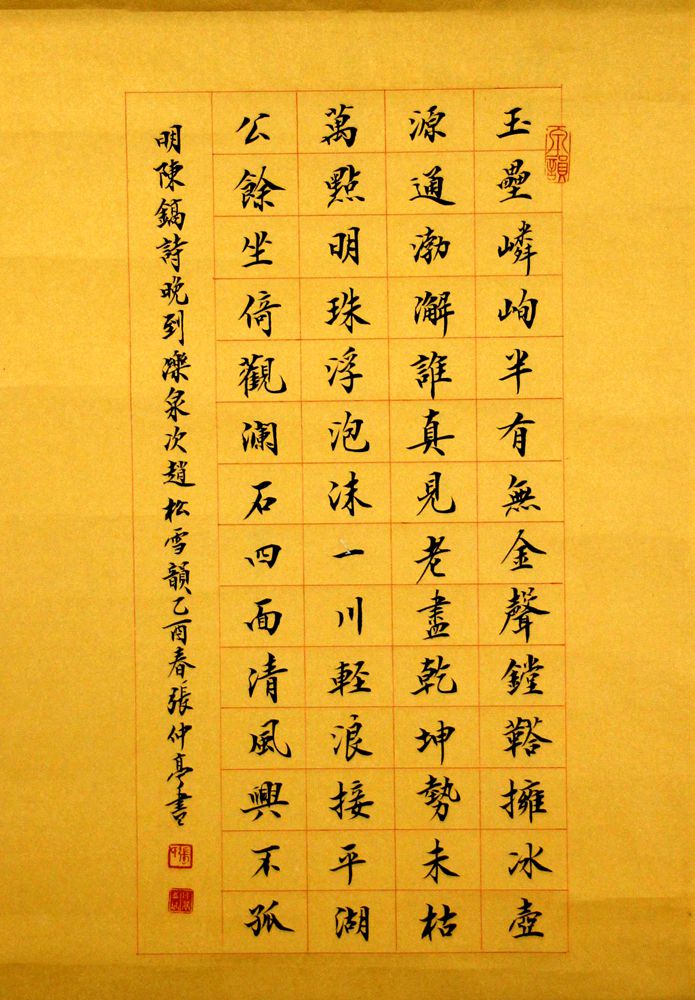 玉壘嶙峋半有無金聲鏜鞳擁冰壺
源通渤澥誰真見老盡乾坤勢未枯
萬點明珠浮泡沫一川輕浪接平湖
公餘坐倚觀澜石四面清風興不孤
明陳鎬詩晚到濼泉次趙松雪韻乙酉春張仲亭書